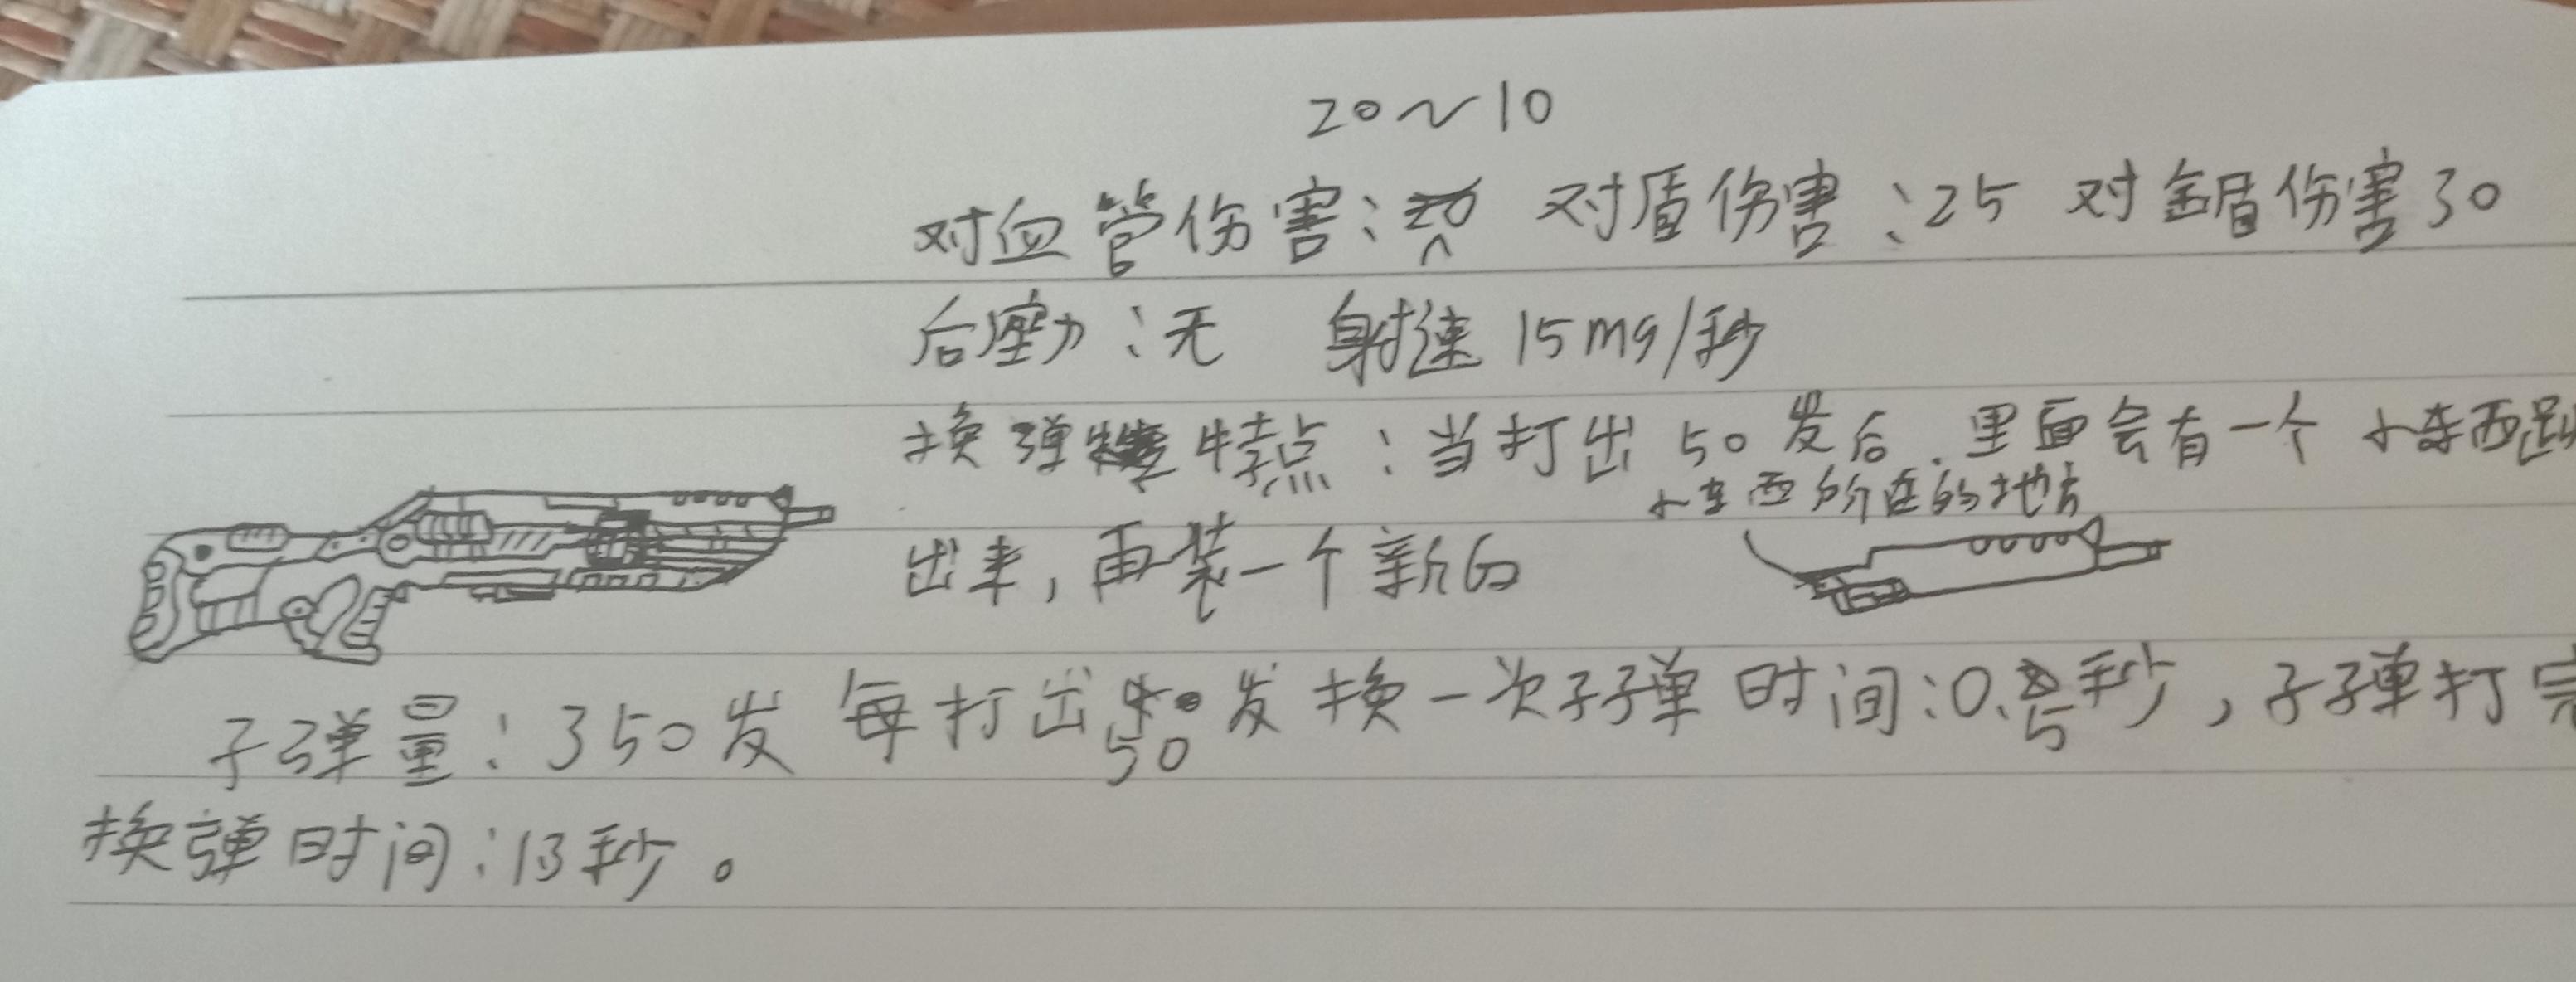 20~10
对血管伤害: 对盾伤害:25 对 伤害30
后座力:无 射速 15mg/秒
换弹 特点:当打出 50 发后.里面会有一个 小东西
小东西所在的地方
出来,再装一个新的
子弹量:350发 每打出 50 发换一次子弹 时间:0.5秒,子弹打完
换弹时间:13秒。